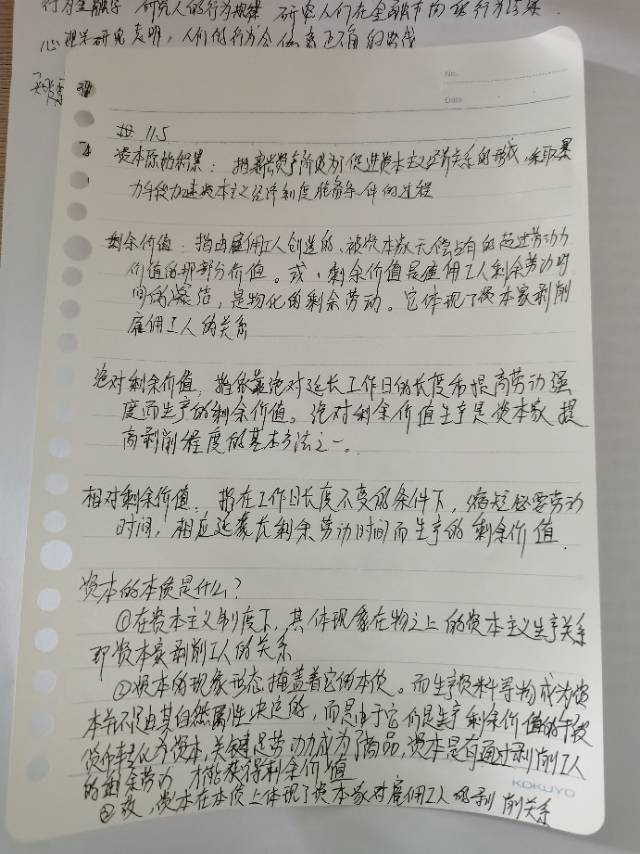 行为金融学 研究人的行为规律 研究人们在金融市场的行为
心理学研究表明，人们的行为会偏离正确的路线
No.
Date
11.5
资本原始积累：指新兴资产阶级为了促进资本主义经济关系的形成，采取暴
力手段为建资本主义经济制度准备条件的过程
剩余价值：指由雇佣工人创造的、被资本家无偿占有的超过劳动力
价值的那部分价值。或，剩余价值是雇佣工人剩余劳动时
间的凝结，是物化的剩余劳动。它体现了资本家剥削
雇佣工人的关系
绝对剩余价值，指依靠绝对延长工作日的长度而提高劳动强
度而生产的剩余价值。绝对剩余价值生产是资本家提
高剥削程度的基本方法之一。
相对剩余价值，指在工作日长度不变的条件下，缩短必要劳动
时间，相应延长剩余劳动时间而生产的剩余价值.
资本的本质是什么？
①在资本主义制度下，其体现象在物之上的资本主义生产关系
即资本家剥削工人的关系
②资本的现象形态掩盖着它的本质。而生产资料等物成为资
本并不是由其自然属性决定的，而是由于它们是生产剩余价值的手段
货币转化为资本，关键是劳动力成为了商品，资本是有通过剥削工人
的剩余劳动 才能获得剩余价值
③故，资本在本质上体现了资本家对雇佣工人的剥削关系
KOKUYO